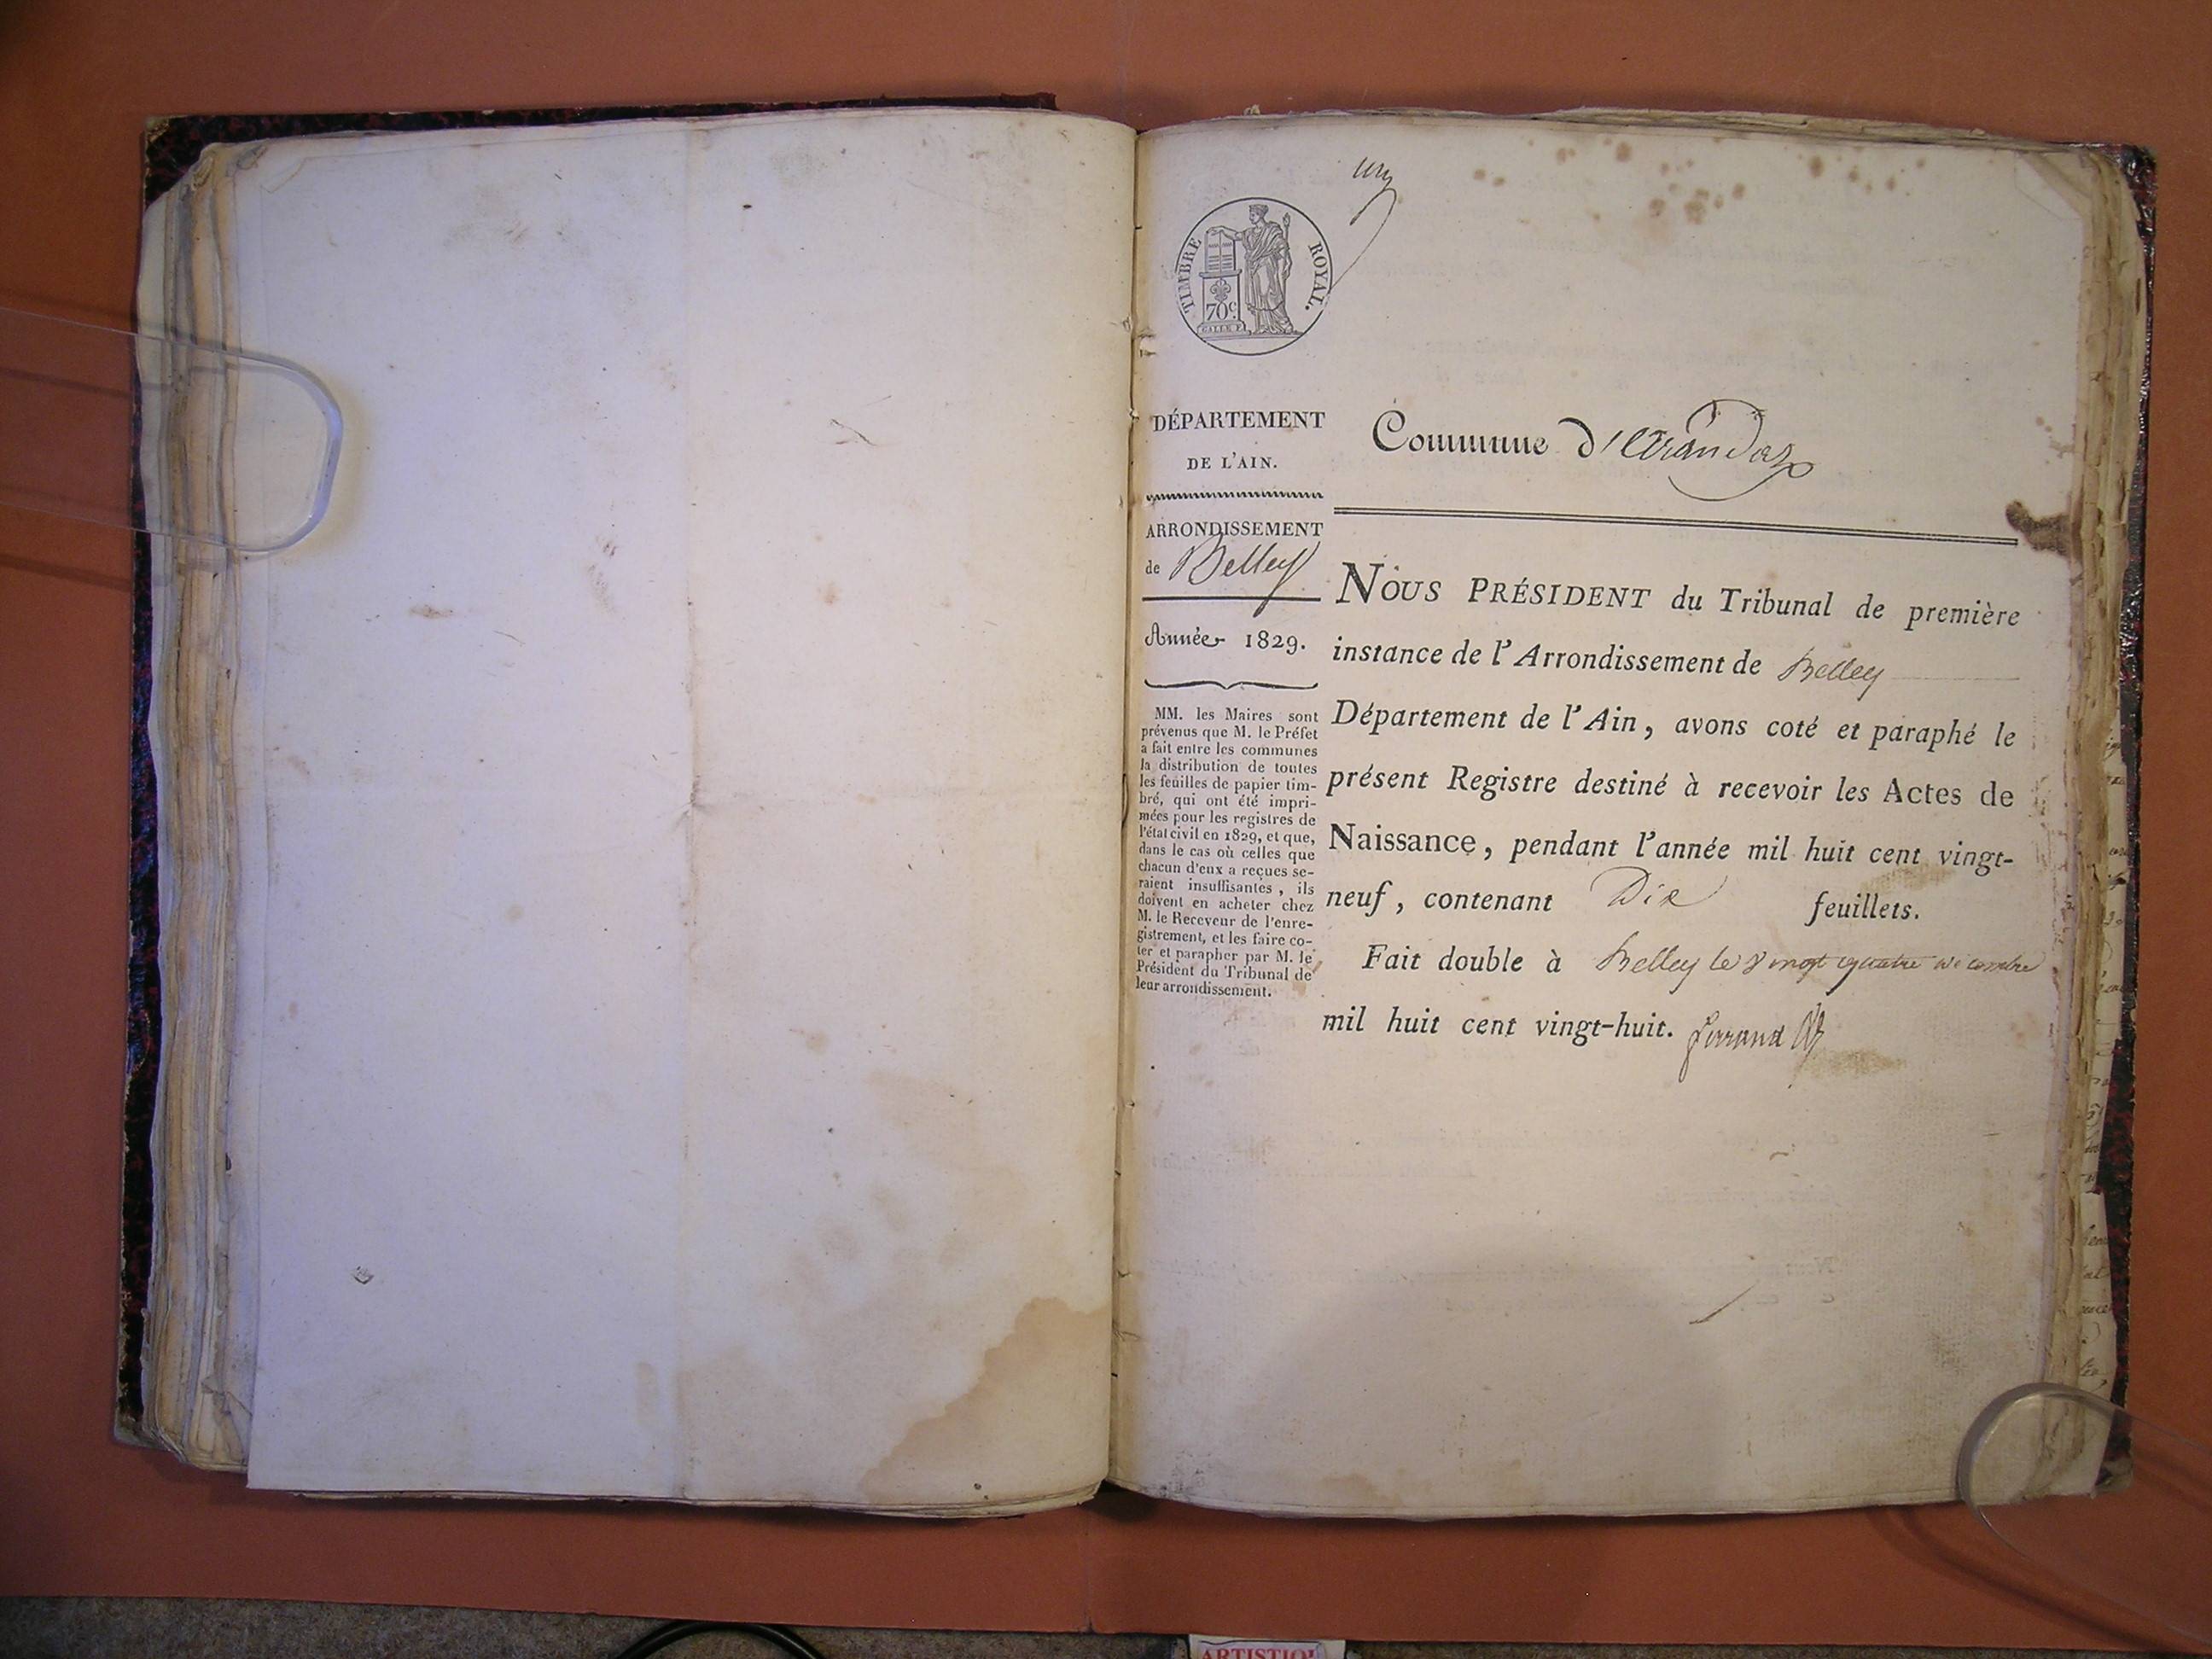 un
TIMBRE ROYAL.
70c
GALLE F.
DÉPARTEMENT
DE L'AIN.
ARRONDISSEMENT
de Belley
Année 1829.
MM. les Maires sont
prévenus que M. le Préfet
a fait entre les communes
la distribution de toutes
les feuilles de papier tim-
bré, qui ont été impri-
mées pour les registres de
l'état civil en 1829, et que,
dans le cas où celles que
chacun d'eux a reçues se-
raient insuffisantes, ils
doivent en acheter chez
M. le Receveur de l'enre-
gistrement, et les faire co-
ter et parapher par M. le
Président du Tribunal de
leur arrondissement.
Commune d'Arandaz
NOUS PRÉSIDENT du Tribunal de première
instance de l'Arrondissement de Belley
Département de l'Ain, avons coté et paraphé le
présent Registre destiné à recevoir les Actes de
Naissance, pendant l'année mil huit cent vingt-
neuf, contenant Dix feuillets.
Fait double à Belley le vingt quatre décembre
mil huit cent vingt-huit. ferrand
ARTISTIQ